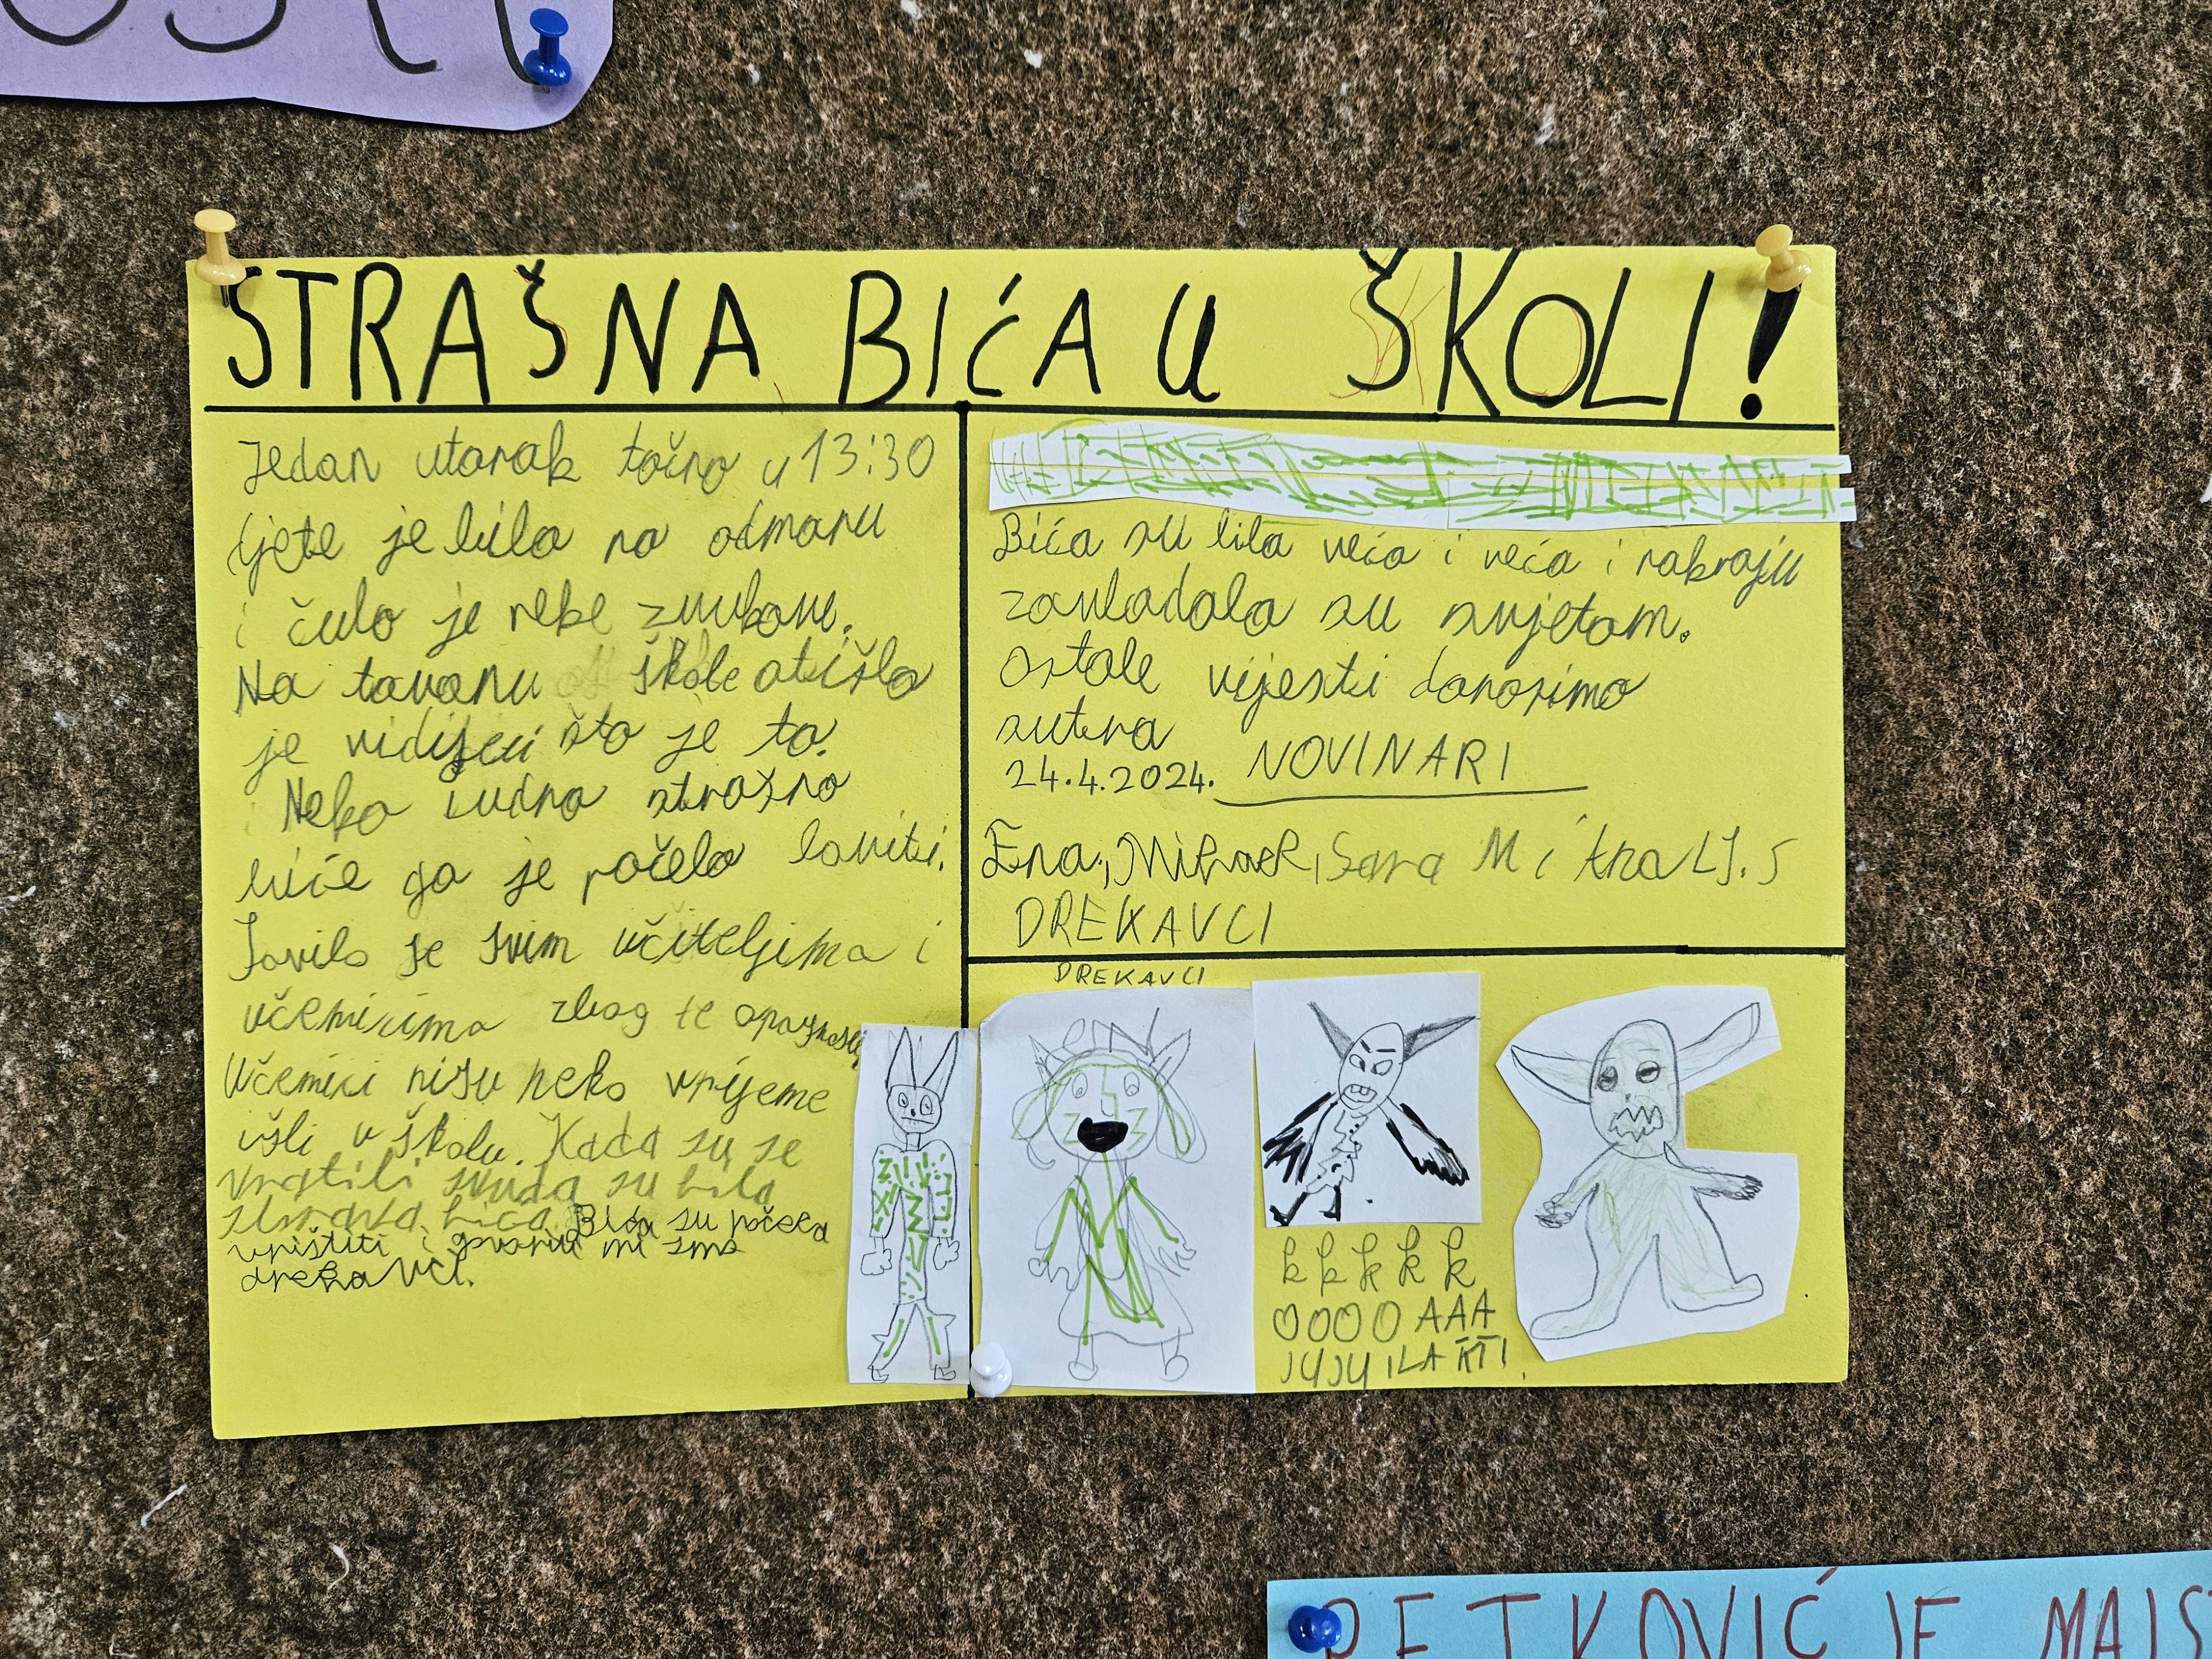 STRAŠNA BIĆA U ŠKOLI!
Jedan utorak točno u 13:30
djete je bilo na odmoru
i čulo je neke zvukove.
Na tavanu škole otišlo
je vidijeti što je to.
Neko čudno strašno
biće ga je počelo loviti.
Javilo je svim učiteljima i
učenicima zbog te opasnosti
Učenici nisu neko vrijeme
išli u školu. Kada su se
vratili svuda su bila
strašna bića. Bića su počela
vrištiti i govoriti mi smo
drekavci.
Bića su bila veća i veća i nakraju
zavladala su svjetom.
Ostale vijesti donosimo
sutra
24.4.2024. NOVINARI
Ena, Sara M i Ana LJ. S
DREKAVCI
DREKAVCI
k k k k k
OOOO AAA
JUJU
RETKOVIĆ JE MAJS